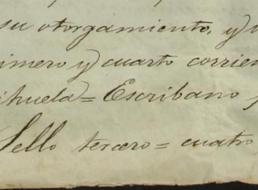 su otorgamiento, y
rimero y cuarto corrien
ihuela = Escribano
Sello tercero = cuatro